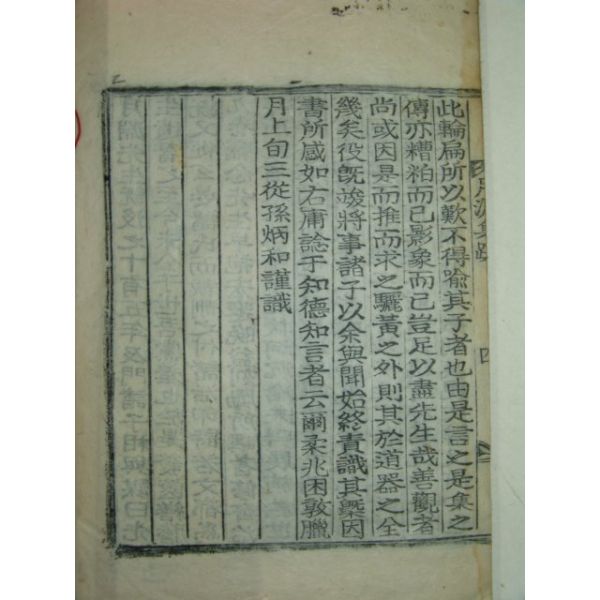 此輪扁所以歎不得喩其子者也由是言之是集之
傳亦糟粕而已影象而已豈足以盡先生哉善觀者
尚或因是而推而求之驪黃之外則其於道器之全
幾矣役旣竣將事諸子以余與聞始終責識其槩因
書所感如右庸諗于知德知言者云爾柔兆困敦臘
月上旬三從孫炳和謹識
四